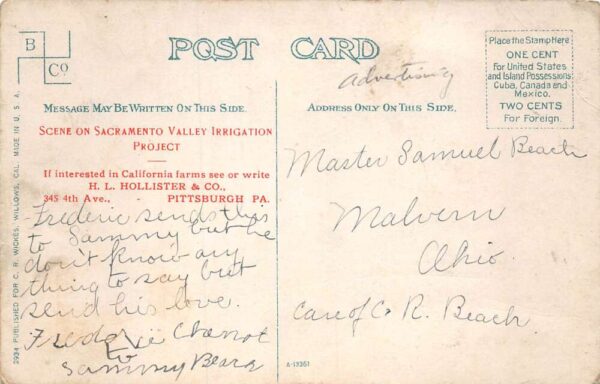 B
Co
POST CARD
Advertising
Place the Stamp Here
ONE CENT
For United States
and Island Possessions
Cuba, Canada and
Mexico.
TWO CENTS
For Foreign.
MESSAGE MAY BE WRITTEN ON THIS SIDE.
ADDRESS ONLY ON THIS SIDE.
SCENE ON SACRAMENTO VALLEY IRRIGATION
PROJECT
If interested in California farms see or write
H. L. HOLLISTER & CO.,
345 4th Ave., - PITTSBURGH PA.
Frederic sends this
to Sammy but he
don't know any
thing to say but
send his love.
Frederic
to
Sammy
Master Samuel Beach
Malvern
Ohio.
Care of C. R. Beach.
3934 PUBLISHED FOR C. R. WICKES, WILLOWS, CAL. MADE IN U. S. A.
A-13361